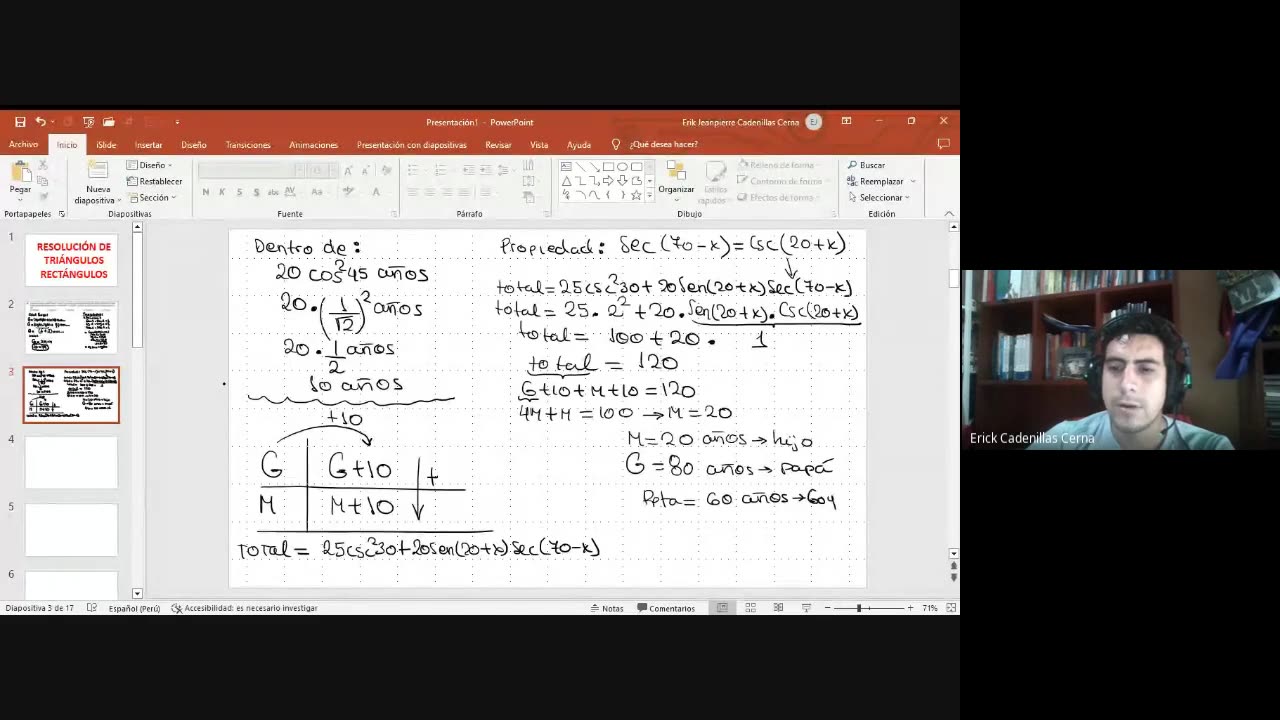 Presentación1 - PowerPoint
Erik Jeanpierre Cadenillas Cerna
EJ
Archivo Inicio iSlide Insertar Diseño Transiciones Animaciones Presentación con diapositivas Revisar Vista Ayuda ¿Qué desea hacer?
Pegar
Nueva diapositiva
Diseño
Restablecer
Sección
N K S S abc AV
Aa
Organizar
Estilos rápidos
Relleno de forma
Contorno de forma
Efectos de forma
Buscar
Reemplazar
Seleccionar
Portapapeles Diapositivas Fuente Párrafo Dibujo Edición
1
RESOLUCIÓN DE
TRIÁNGULOS
RECTÁNGULOS
2
3
4
5
6
Dentro de:
20 cos²45 años
20·(1/√2)² años
20·1/2 años
10 años
+10
G G+10 +
M M+10
Total = 25csc²30+20Sen(20+x)Sec(70-x)
Propiedad: Sec(70-x)=Csc(20+x)
total=25csc²30+20Sen(20+x)Sec(70-x)
total= 25·2²+20·Sen(20+x)·Csc(20+x)
total= 100+20· 1
total = 120
G+10+M+10=120
4M+M=100→M=20
M=20 años→hijo
G=80 años→papá
60 años→
Diapositiva 3 de 17 Español (Perú) Accesibilidad: es necesario investigar Notas Comentarios 71%
Erick Cadenillas Cerna